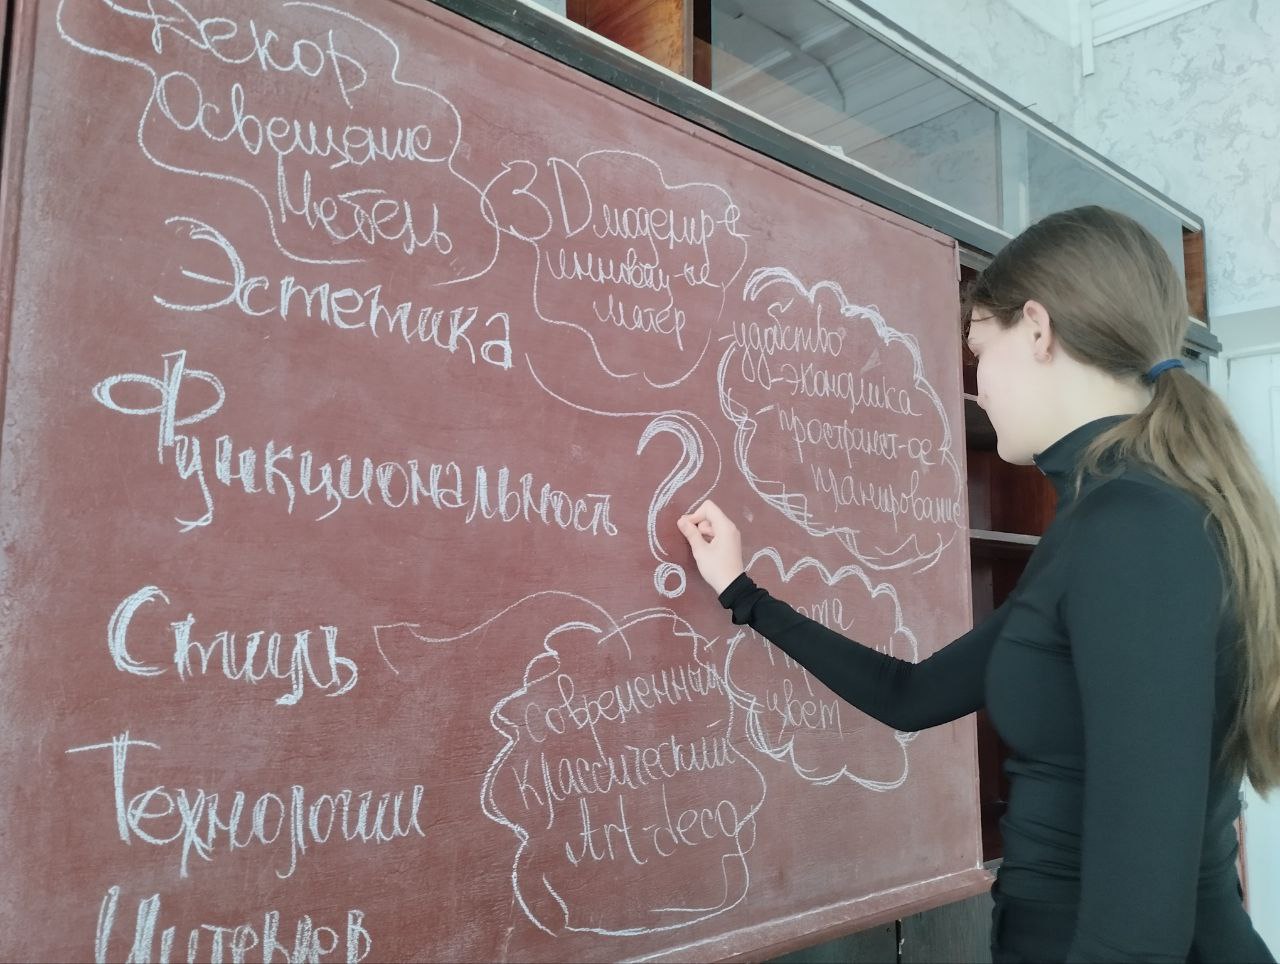 Декор
Освещение
Мебель
3D моделир-е
инновац-ые
матер
Эстетика
удобство
-экономика
-пространст-ое
планирование
Функциональность
?
цвет
Стиль
современный
классический
Art-deco
Технологии